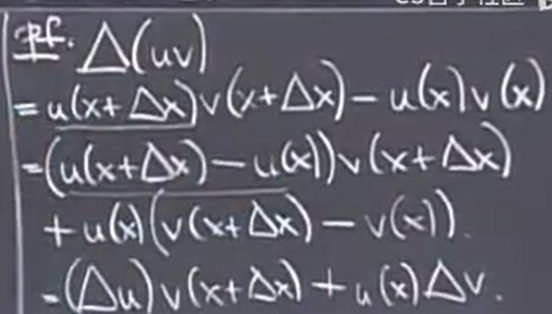 pf. Δ(uv)
= u(x+Δx)v(x+Δx) − u(x)v(x)
=(u(x+Δx) − u(x))v(x+Δx)
+ u(x)(v(x+Δx) − v(x)).
=(Δu)v(x+Δx) + u(x)Δv.